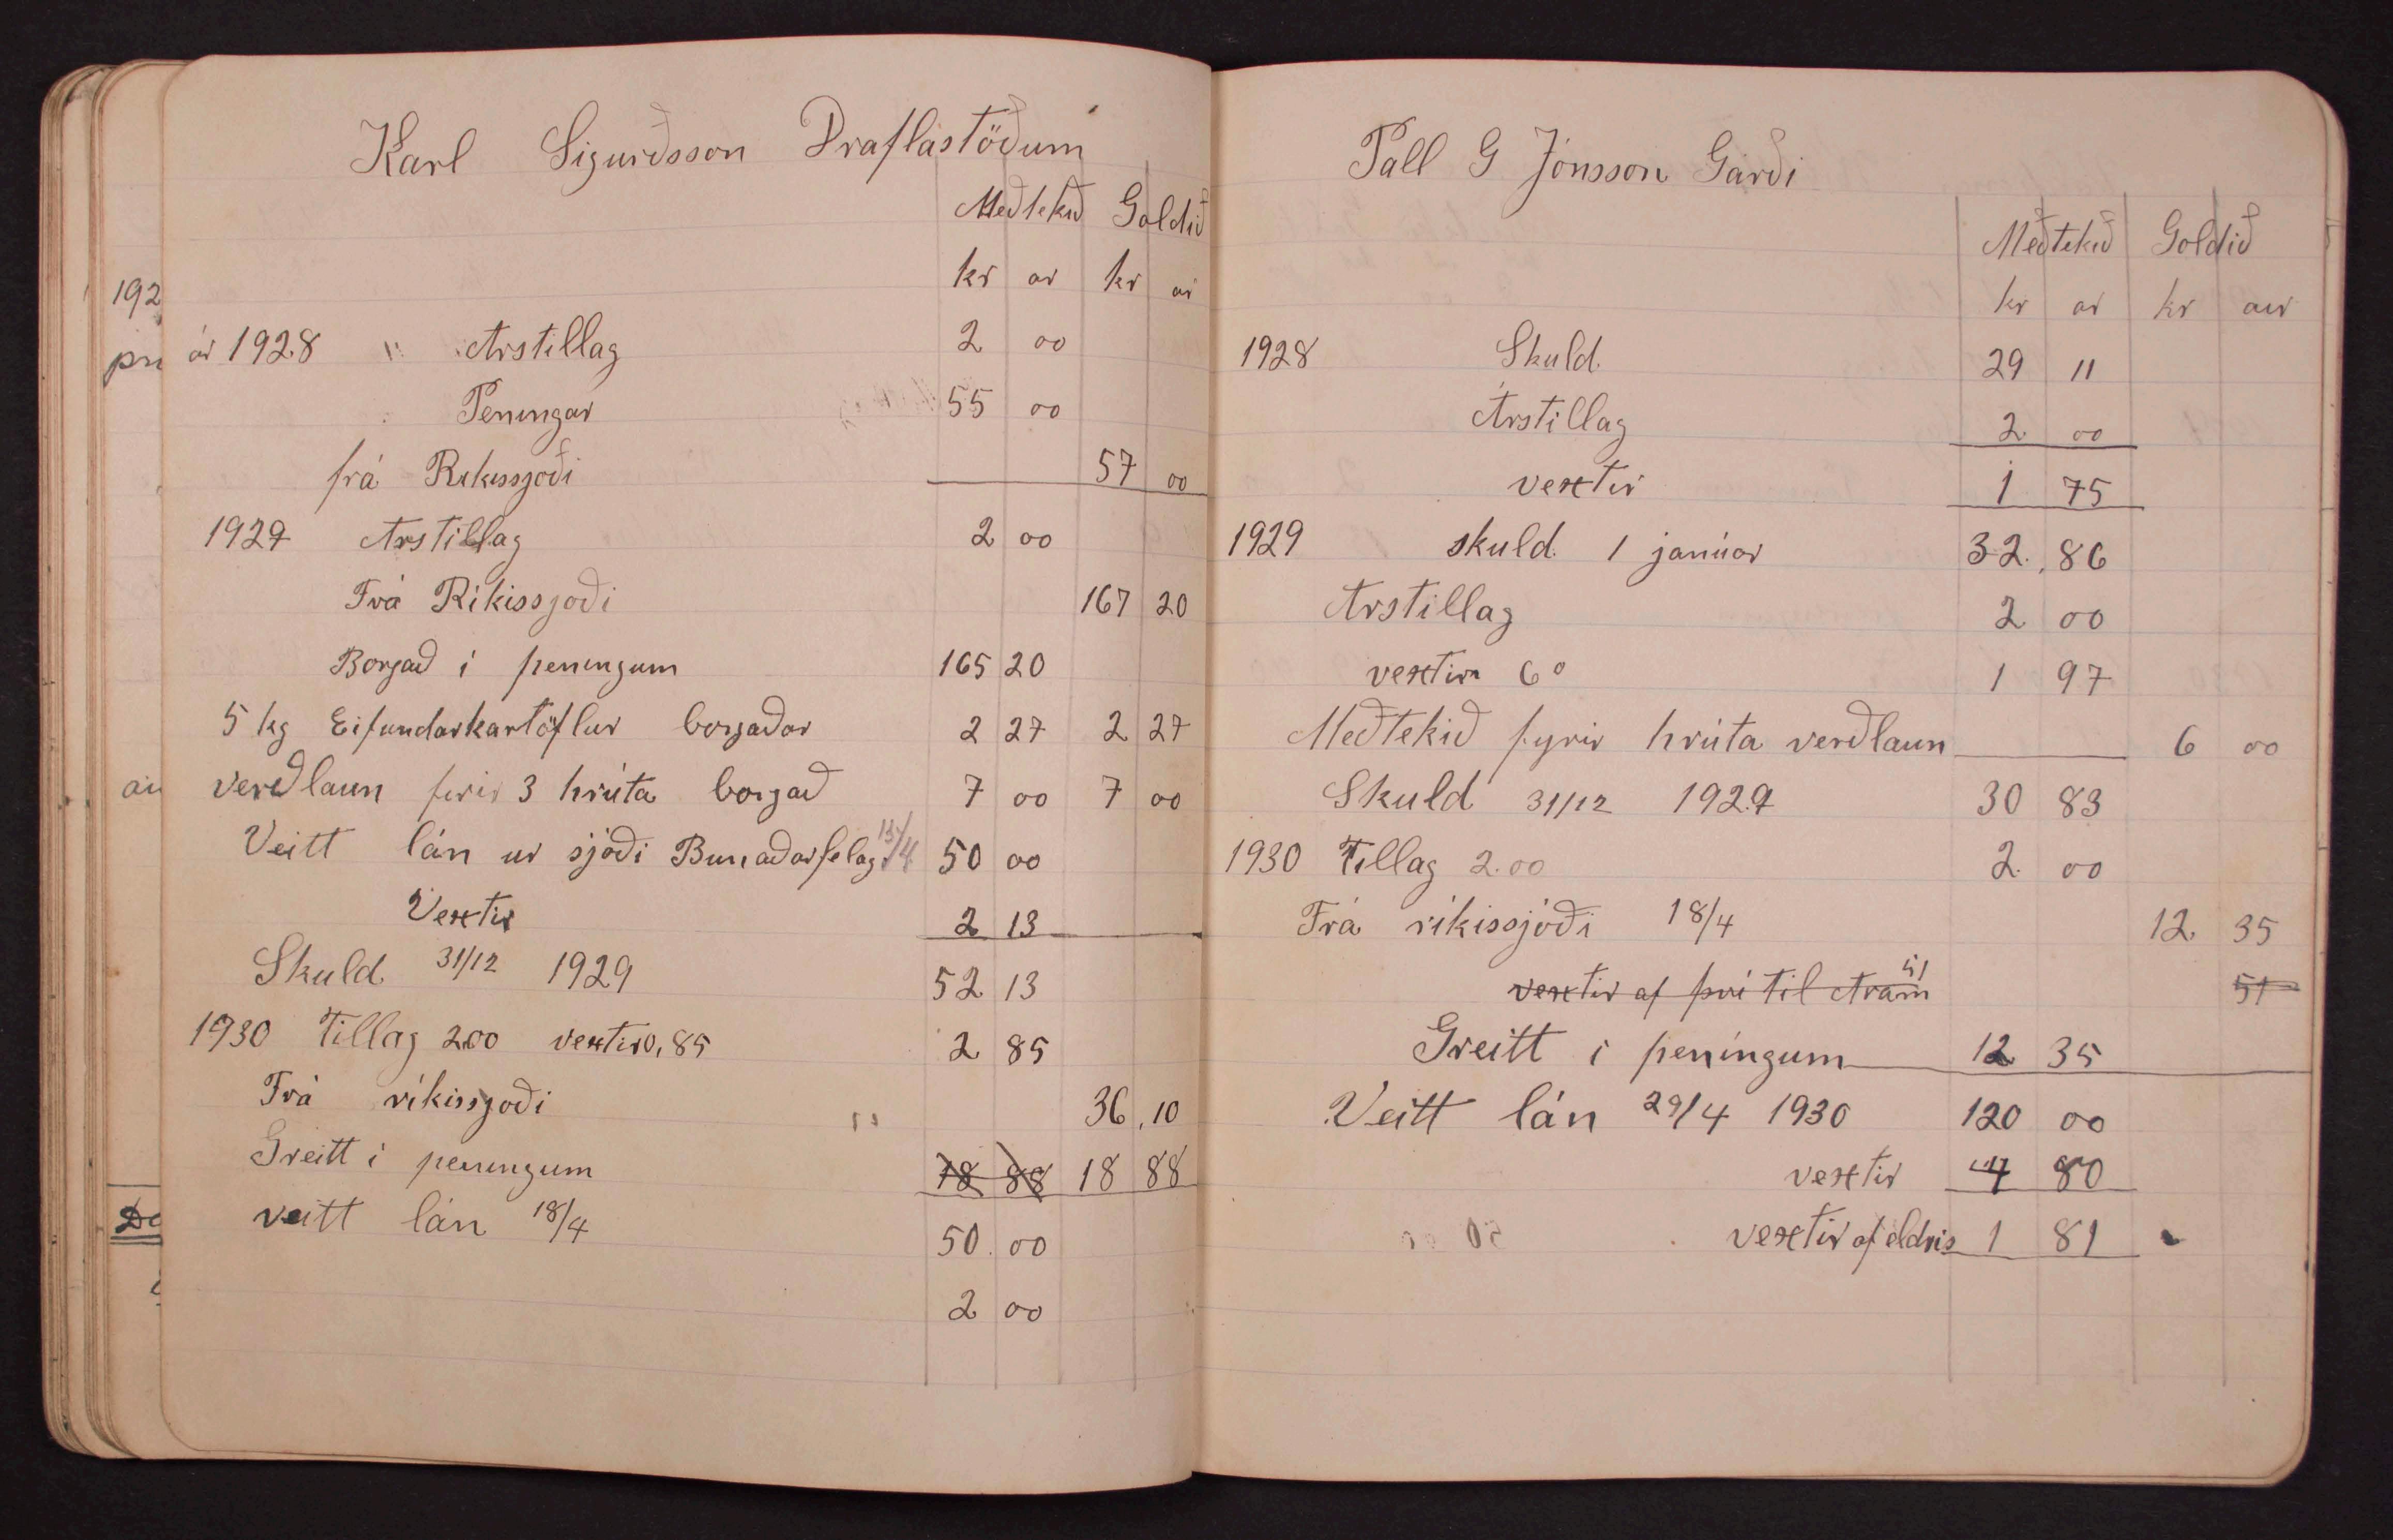 192
pn
Karl Sigurðsson Draflastöðum
Meðtekið Goldið
kr ar kr ar
ár 1928 " Arstillag 2 00
Peningar 55 00
frá Rikissjoði 57 00
1929 Arstillag 2 00
Frá Ríkissjoði 167 20
Borgað i peningum 165 20
5 kg Eifundarkartöflur borgaðar 2 27 2 27
verðlaun firir 3 hrúta borgað 7 00 7 00
Veitt lán ur sjóði Bunaðarfelag 13/4 50 00
Vextir 2 13
Skuld 31/12 1929 52 13
1930 Tillag 2.00 vextir 0,85 2 85
Frá ríkissjoði 36,10
Greitt i peningum 18 88 18 88
veitt lán 18/4 50.00
2 00
Pall G Jónsson Garði
Meðtekið Goldið
kr ar kr aur
1928 Skuld. 29 11
Árstillag 2 00
vextir 1 75
1929 skuld. 1 janúar 32.,86
Arstillag 2 00
vextir 6° 1 97
Meðtekið fyrir hrúta verðlaun 6 00
Skuld 31/12 1929 30 83
1930 Tillag 2.00 2. 00
Frá ríkissjóði 18/4 12 35
vextir af því til 51
Greitt i peníngum 12 35
Veitt lán 29/4 1930 120 00
vextir 4 80
vextir af eldris 1 81